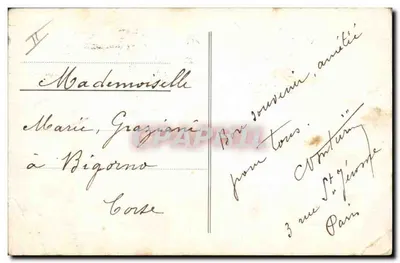 II
Mademoiselle
Marie, Graziani
à Bigorno
Corse
Bon souvenir, amitié
pour tous.
3 rue St Jérome
Paris